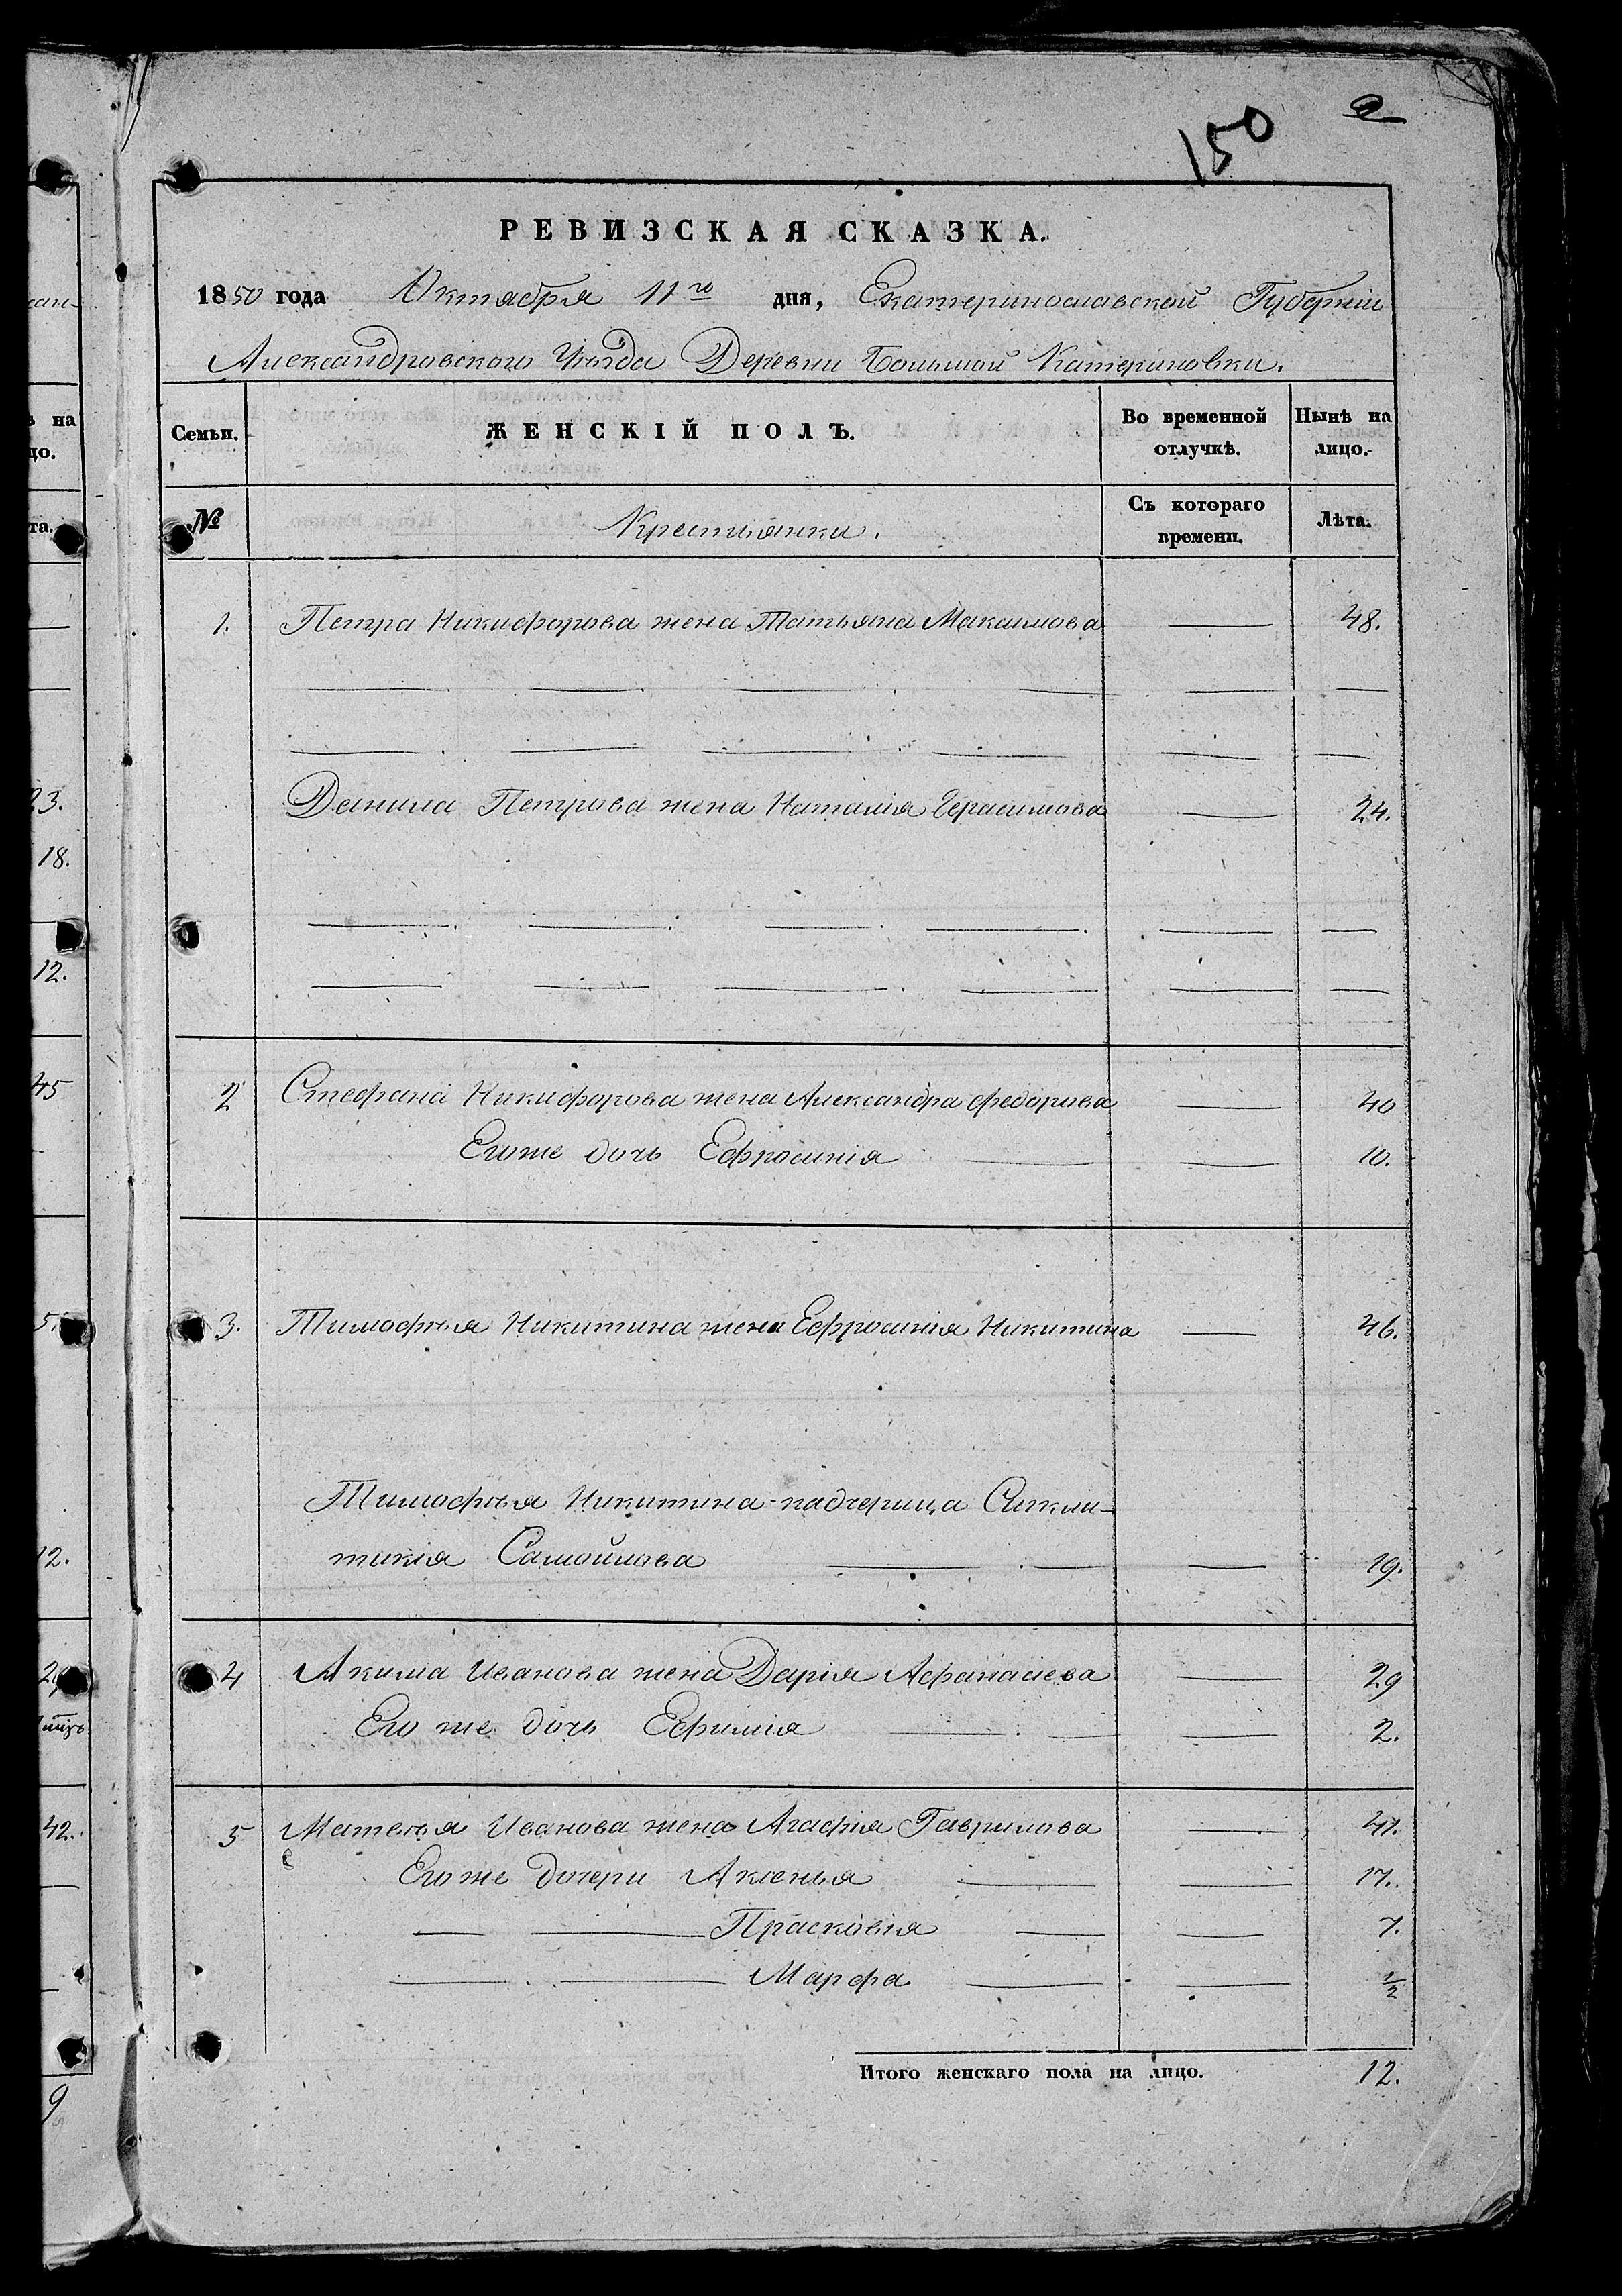 150 2
РЕВИЗСКАЯ СКАЗКА.
1850 года Октября 11го дня, Екатеринославской Губерніи
Александровского Уѣзда Деревни Большой Катериновки.
Семьи. ЖЕНСКІЙ ПОЛЪ. Во временной отлучкѣ. Нынѣ на лицо.
№ Крестьянки. Съ котораго времени. Лѣта.
1. Петра Никифорова жена Татьяна Максимова 48.
Данила Петрова жена Наталия Герасимова 24.
2 Стефана Никифорова жена Александра Федорова 40
Егоже дочь Ефросинія 10.
3. Тимофѣя Никитина жена Ефросинія Никитина 46.
Тимофѣя Никитина падчерица Синкли-
тикія Самойлова 19.
4 Акима Иванова жена Дарія Афанасіева 29
Его же дочь Ефимія 2.
5 Матвѣя Иванова жена Агафія Гаврилова 41.
Егоже дочери Аксенья 17.
Прасковія 7.
Марфа 1/2
Итого женскаго пола на лицо. 12.
на
до.
та.
23.
18.
12.
45
12.
42.
9